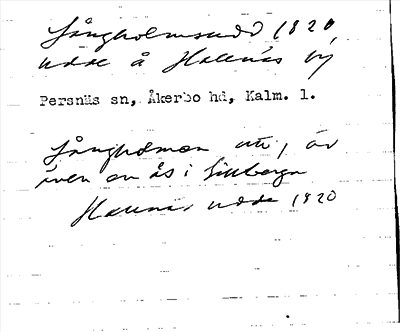 Långholmsudd 1820,
udde å Hallnäs by
Persnäs sn, Åkerbo hd, Kalm. l.
Långholmen utm, är
även en ås i Sillberga
Hallnäs udde 1820